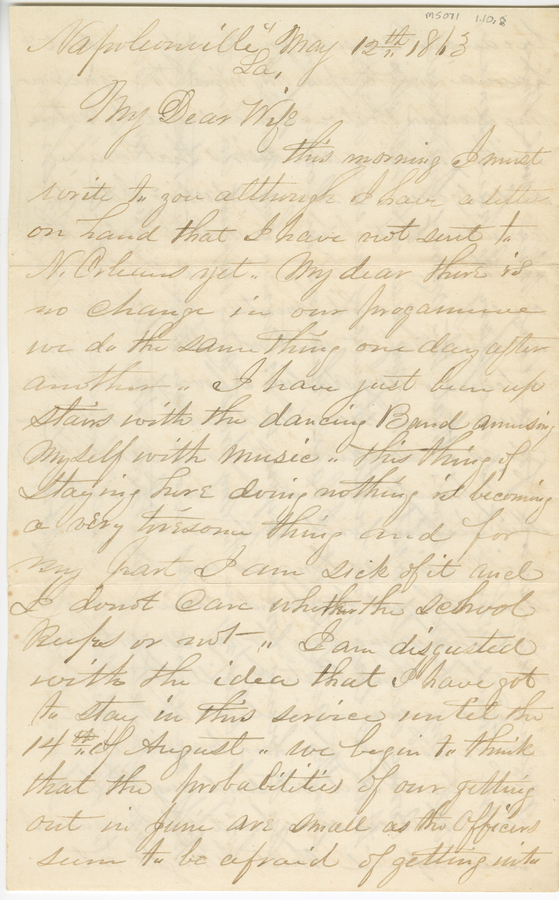 MS071 1.10.8
Napoleonville" May 12th 1863
La,
My Dear Wife
this morning I must
write to you although I have a letter
on hand that I have not sent to
N. Orleans yet " My dear there is
no change in our progamme
we do the same thing one day after
another " I have just been up
stairs with the dancing Band amusing
Myself with music " this thing of
Staying here doing nothing is becoming
a very tiresome thing and for
my part I am sick of it and
I donot Care whether the school
Keeps or not " I am disgusted
with the idea that I have got
to stay in this service until the
14th of August " we begin to think
that the probabilities of our getting
out in June are small as the Officers
seem to be afraid of getting into